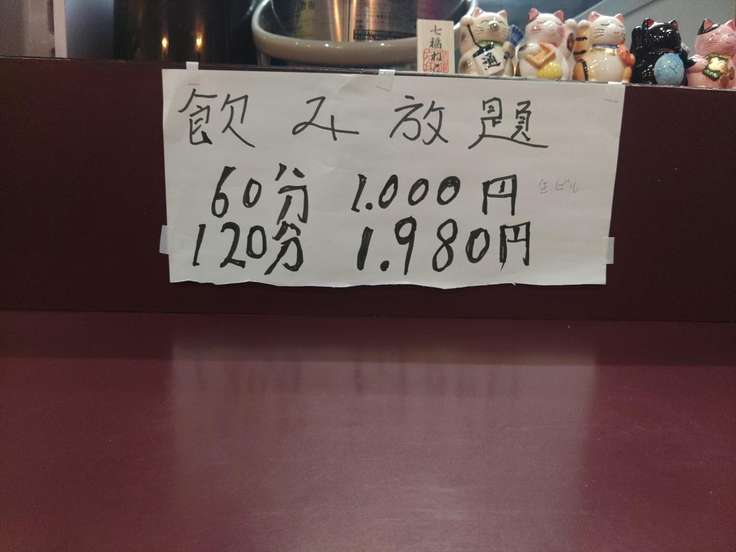 七福ねこ
飲み放題
60分 1.000円 生ビール
120分 1.980円